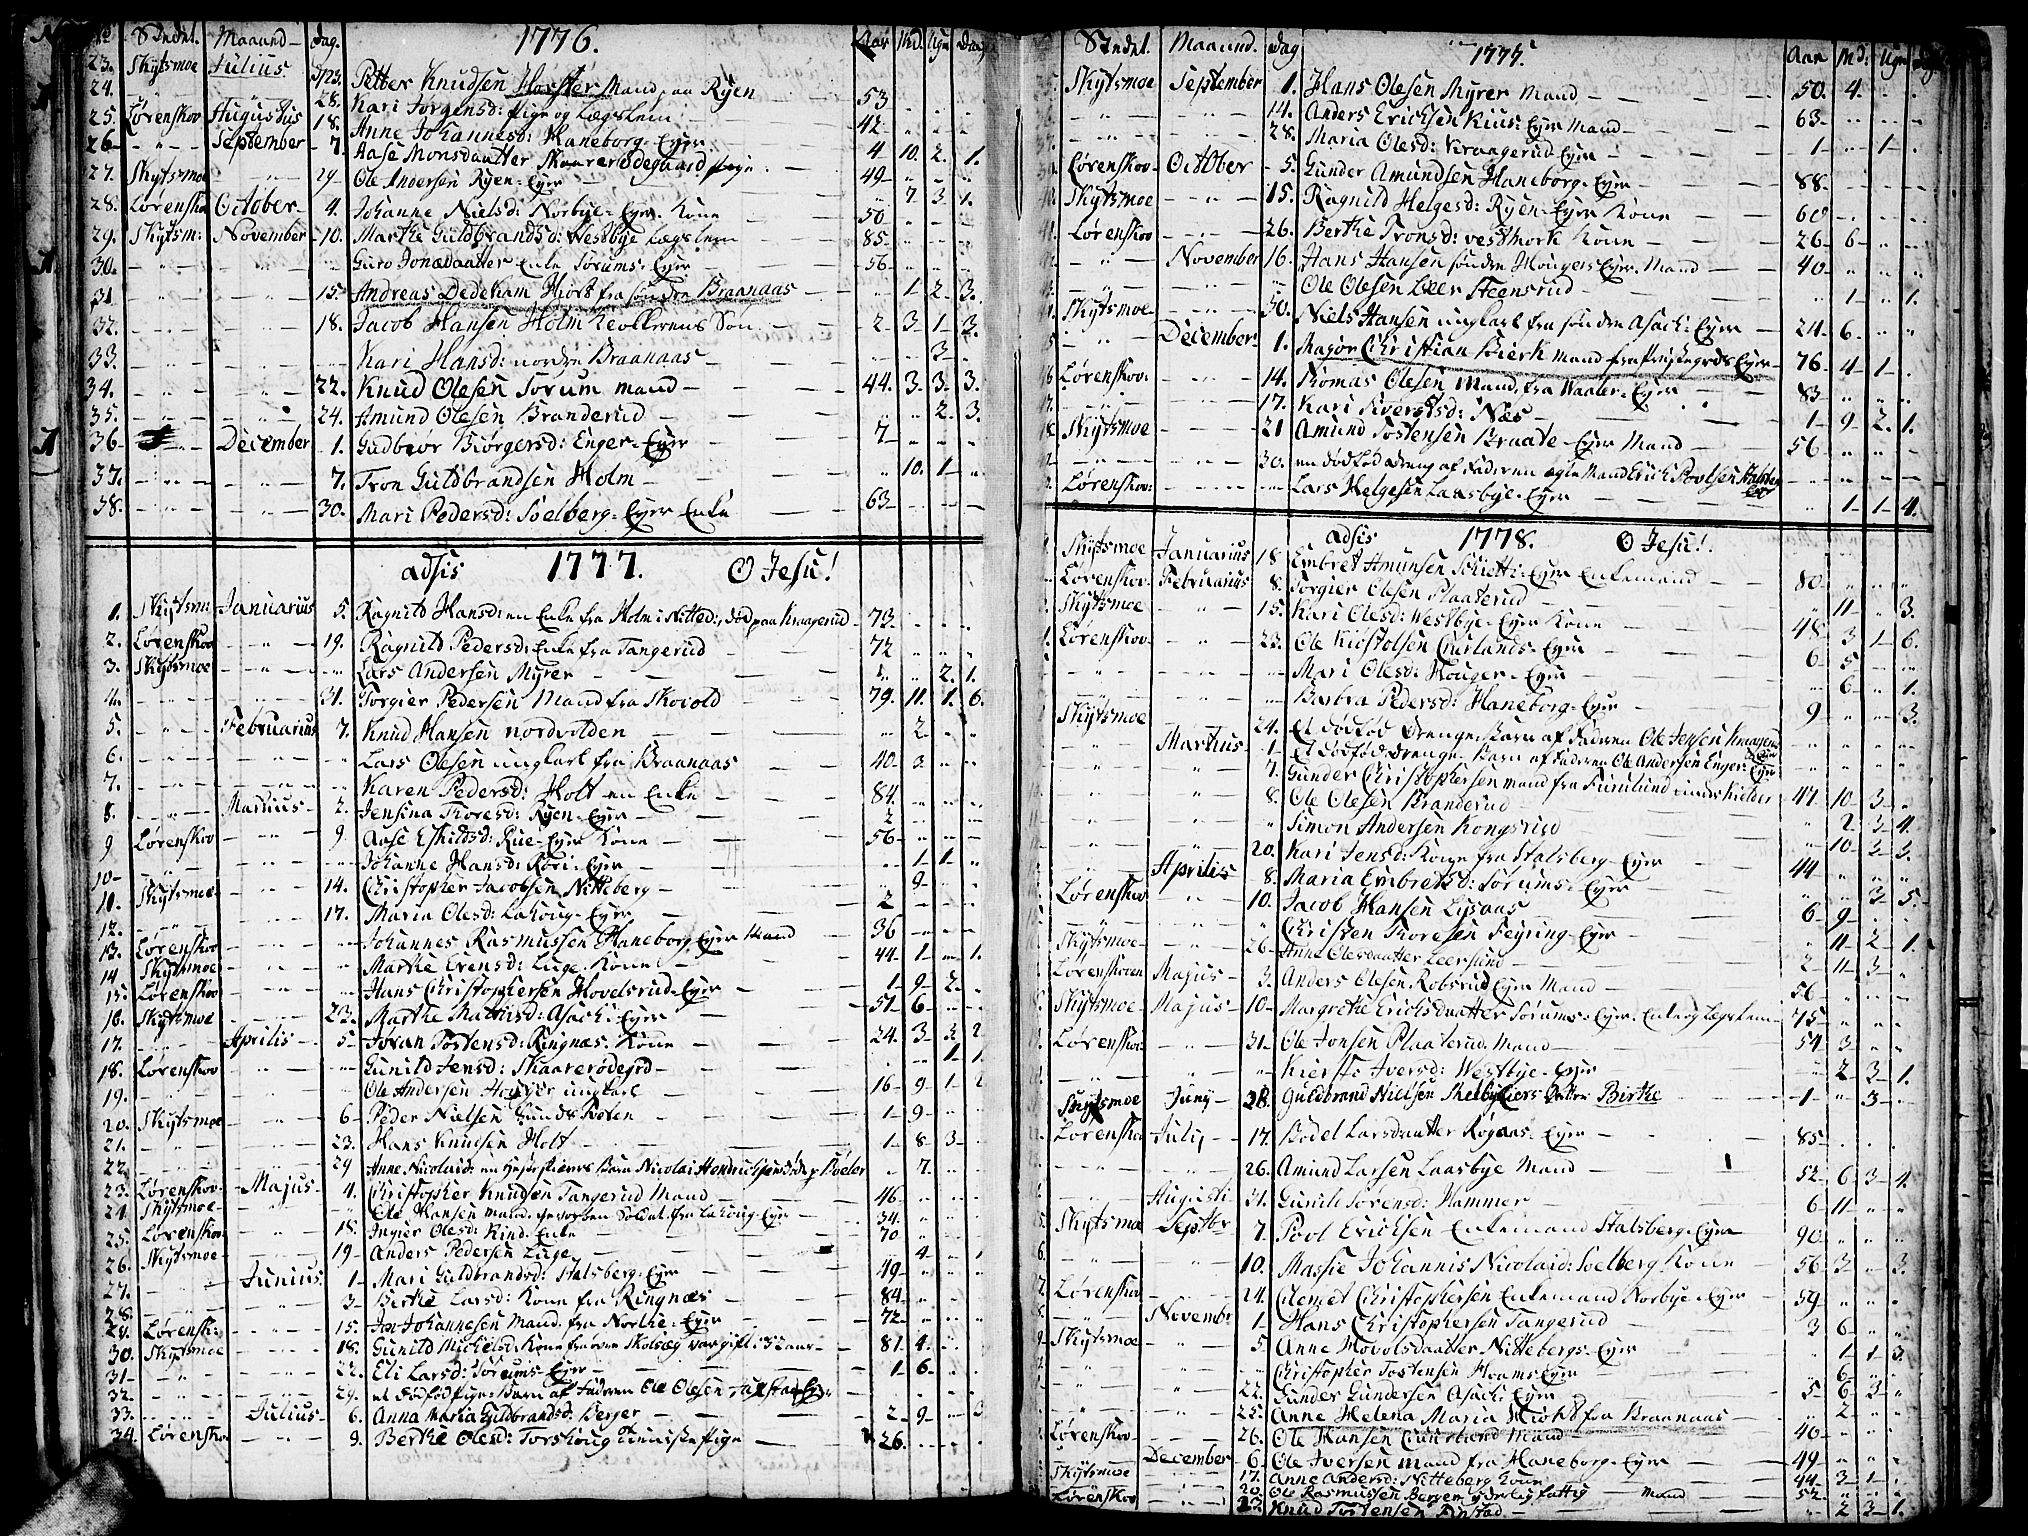 No Stedet. Maaned dag. 1776. Aar Md. Ugr Dage
23. Skytsmoe Julius
24. Petter Knudsen Horster Mand paa Ryen 53
25. Lørenskov Augustus 28. Kari Jorgensd: Pige og Lægslem 42
18. Anne Johannesd: Haneborg-Eyer 4 10. 2. 1.
26 September 7. Aase Monsdaatter Skaarerødegaard pige 49
27. Skytsmoe 29 Ole Andersen Ryen-Eyer 7 3 1.
28. Lørensko October 4. Johanne Nielsd: Norbye-Eyer Kone 50
29. Skytsm: November 10. Marthe Guldbrandsd: Westbye Lægslem 85
30. Guro Jonsdaatter Enke Sørums-Eyer 56
31 15. Andreas Dedekam Hiort fra søndre Braanaas 1 2 3.
32. 18. Jacob Hansen Holm Søn 2 3 1 3.
33. Kari Hansd: nordre Braanaas 3
34. 22. Knud Olesen Sorum mand 44. 3. 3. 3.
35. 24. Amund Olesen Branderud 2. 3.
36 December 1. Gudbior Biørgersd: Enger-Eyer 7
37. 7. Tron Guldbrandsen Holm 10. 1
38. 30. Mari Pedersd: Soelberg-Eyer Enke 63
adsis 1777. O Jesu!
1. Skytsm: Januarius 5. Ragnild Hansd: en Enke fra Holm i Nitted:, død paa Kraagerud 73
2. Lørenskov 19. Ragnild Pedersd: Enke fra Tangerud 72
3. Skytsmoe Lars Andersen Myrer 2. 1.
4. 31. Torgier Pedersen Mand fra Skovold 79. 11. 1. 6.
5. Februarius 7. Knud Hansen nordvolden 2
6. Lars Olesen ungkarl fra Braanaas 40 3
7. Karen Pedersd: Holt en Enke 84
8. Martius 2. Jensina Thoresd: Ryen-Eyer 2
9 Lørenskov 9. Aase Eskildsd: Rue-Eyer Kone 56
10 Johanne Hansd: Røri-Eyer 1 1
11. Skytsmoe 14. Christopher Jacobsen Nitteberg 9
12. 17. Maria Olesd: Lakoug-Eyer 2
13. Lørenskov Johannes Rasmussen Haneborg Eyer Mand 36
14 Skytsmoe Marthe Evensd: Luge Kone 44 1 1.
15. Lørenskov Hans Christophersen Hovelsrud-Eyer 1 9 2
16. Skytsmoe 23. Marthe Mathisd: Asach-Eyer 51 6
17. Aprilis 5 Joran Tostensd: Ringnæs. Kone 34. 3 3 2
18. Lørenskov Gunild Jensd: Skaarerødegrd 1 1
19. Ole Andersen Houger ungkarl 16 9 1 2
20. Skytsmoe 6 Peder Nielsen 1 9
21. 23. Hans Knudsen Holt 1 8 3
22. 29 Anne Nicolaid: en Barn Nicolai Hendrichsen 7.
23. Lørenskov Majus 4. Christopher Knudsen Tangerud Mand 46
24 Skytsmoe Ole Hansen mand Soldat fra Lakoug-Eyer 34.
25. Lørenskov 18. Ingier Olesd: Rind Enke 70
26. Skytsmoe 19 Anders Pedersen Luge 4 1
27. Junius 1 Mari Guldbrandsd: Stalsberg-Eyer 49
28. 3 Birthe Larsd: Kone fra Ringnæs 84
29. Lørensk: 15. Johannesen Mand fra Northe-Eyer 72
30. Skytsmoe 18. Gunild Michelsd: Kone 52 aar 81 4
31 22. Eli Larsd: Sørums-Eyer 1 6
32. 29. et dødfød Pige-Barn af Faderen Ole Olesen
33. Julius 6. Anna Maria Guldbrandsd: Berger 2 9 3
34. Lørensko 9. Berthe Olesd: Torshoug Pige 26

Stedet. Maaned. dag 1777. Aar Md: Ugr
Skytsmoe September 1. Hans Olesen Myrer Mand 50. 4.
14. Anders Ericksen Kius: Eyer Mand 63
28. Maria Olesd: Kraagerud Eyer 1 1
Lørenskov October 5. Gunder Amundsen Haneborg-Eyer 88
Skytsmoe 15. Ragnild Helgesd: Ryen-Eyer Kone 60
Lørenskov 26. Berthe Tronsd: vestMork Kone 26 6
November 16. Hans Hansen søndre Hougers Eyer. Mand 40
Ole Olesen Leer Steensrud 1 1.
Skytsmoe 30. Niels Hansen ungkarl fra søndre Asach: Eyer 24 6
December 1. Major Christian Bierk mand fra Eyer 76 4 1
Lørenskov: 14. Thomas Olesen Mand, fra Waaler-Eyer 83
17. Kari Siversd: Næs 1 9 2. 1.
Skytsmoe 21 Amund Tostensen Braate-Eyer Mand 56
30. en dødfød dreng af Faderen Erich Povelsen
Lørenskov: Lars Helgesen Laasbye-Eyer 1 1 4.
adsis 1778. O Jesu!
Skytsmoe Januarius 18 Embret Amunsen Schiett: Eyer Enkemand 80
Lørenskov Februarius 8. Torgier Olesen Plaaterud 11 3.
Skytsmoe 15. Kari Olesd: Westbye-Eyer Kone 48 3 1 6.
Lørenskov 22. Ole Kiøstolsen Cuurlands-Eyer 6 5
Mari Olesd: Houger-Eyer 6 1.
Barbra Pedersd: Haneborg-Eyer 9 3.
Skytsmoe 24. Et dødfød Drenge-Barn af Faderen Ole Jensen Kraagerud
Martius 1 Et dødfød Drenge-Barn af Faderen Ole Andersen Enger: Eyer
7. Gunder Christophersen mand fra Furulund 47 10 3
8. Ole Olesen Branderud 2 3 4.
Simon Andersen Kongsrud 10 2 3.
20. Kari Jensd: Kone fra Stalsberg-Eyer 44
Aprilis 8. Maria Embretsd: Sørums-Eyer 3 5
Lørenskov 10. Jacob Hansen Lysaas 6 9
Christen Thoresen Feyring-Eyer 11 2 1.
Skytsmoe 26 Anne Olesdaatter Leersund 2 11 3
Lørenskoven Majus 3. Anders Olesen Robsrud Eyer Mand 56
Skytsmoe Majus 10 Margrethe Erichsdaatter Sørums-Eyer Enke og Lægslem 75
Lørenskov 31 Ole Jonsen Plaaterud Mand 54 3
Kiersti Iversd: Westbye-Eyer 2 3 1.
Skytsmoe Junj 28. Guldbrand Nielsen 1 3
Lørensko Julij 17. Bodel Larsdaatter Røgaas-Eyer 85
26. Amund Larsen Laasbye Mand 52 6 3 4
Augusti 31. Gunild Sorensd: Hammer 6 11
Skytsmoe Septbr 7. Povl Ericksen Enkemand Stalsberg-Eyer 90
10. Massie Johannis Nicolaid: Soelberg Kone 56 3 3.
Lørenskov 24. Clemet Christophersen Enkemand Norbye-Eyer 59
Novembr 1. Hans Christophersen Tangerud 3 6
Skytsmoe 5. Anne Hovolsdaatter Nittebergs-Eyer 1 1 3
Christopher Tostensen Hoams-Eyer 6
22. Gunder Gundersen Asach: Eyer 5 6 3
25. Anne Helena Maria Hiort fra Braanaas 2
Lørenskov 26. Ole Hansen Cuurland Mand 40
December 6 Ole Iversen mand fra Haneborg-Eyer 49
Skytsmoe 17. Anne Andersd: Nitteberg Kone 44 3 1
20. Ole Rasmussen Bergem fattig Mand 52
Lørenskov 23. Knud Tostensen Finstad 2 3 1.